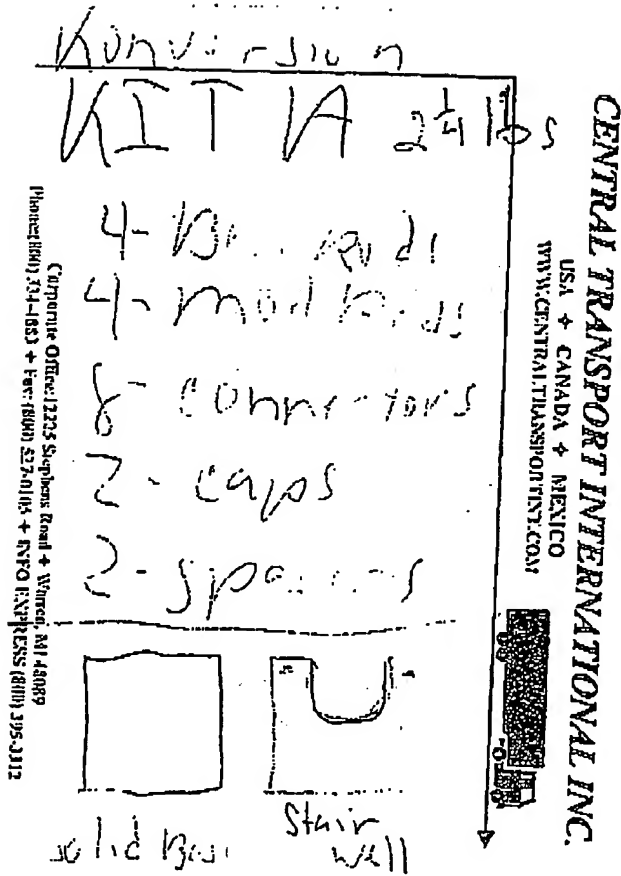 Konversion
KIT A 2 1/4 lbs
4- Rods
4- Mod Rods
8- Connectors
2- caps
2-
Stair
Solid Base
Well
CENTRAL TRANSPORT INTERNATIONAL INC.
USA + CANADA + MEXICO
WWW.CENTRALTRANSPORTINT.COM
Corporate Office: 12225 Stephens Road + Warren, MI 48089
Phone: (800) 334-4883 + Fax: (800) 527-0105 + INFO EXPRESS (800) 395-3312